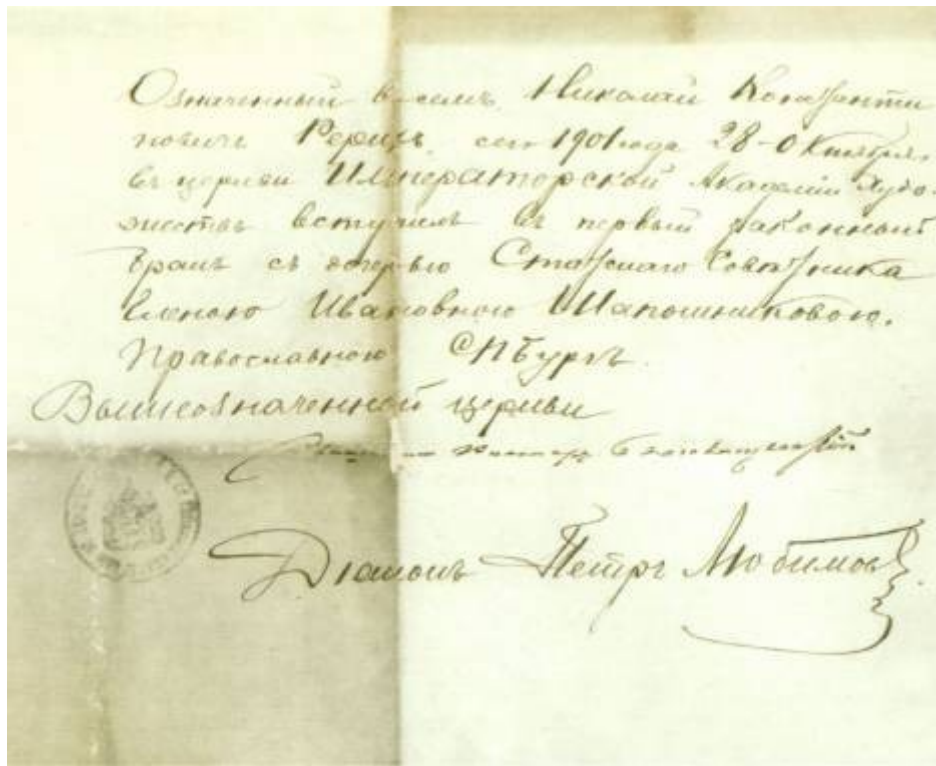 Означенный въ семъ Николай Константи
новичъ Рерихъ, сего 1901 года 28-Октября,
въ церкви Императорской Академіи Худо-
жествъ вступилъ въ первый законный
бракъ съ дочерью Статскаго Советника
Еленою Ивановною Шапошниковою.
Православною СПбургъ.
Вышеозначенной церкви
Діаконъ Петръ Любимовъ.